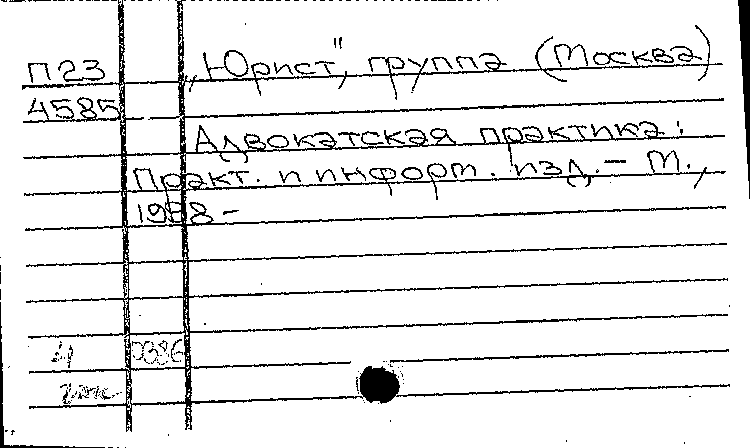 П23 „Юрист", группа (Москва)
4585
Адвокатская практика:
Практ. и информ. изд. – М.,
1998 –
4 0386